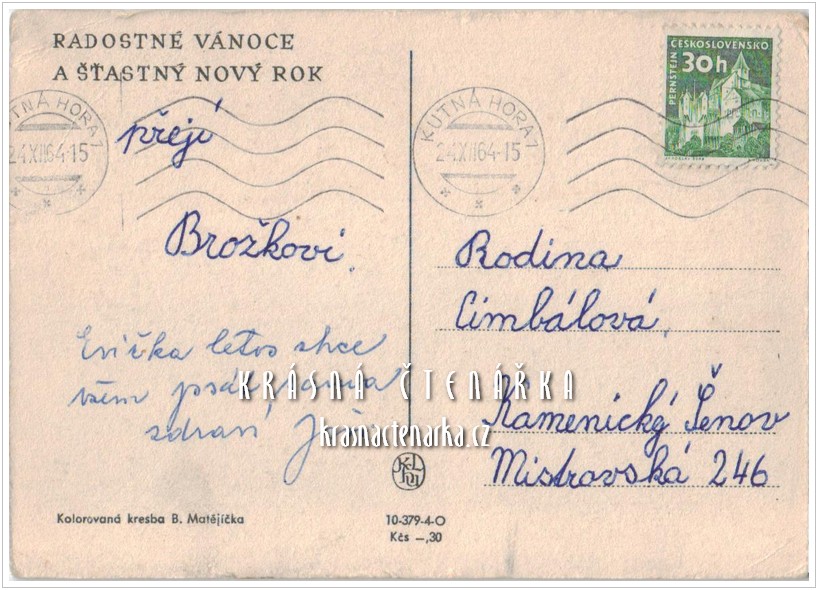 RADOSTNÉ VÁNOCE
A ŠŤASTNÝ NOVÝ ROK
přejí
Brožkovi.
Evička letos chce
vám psát sama
zdraví
Kolorovaná kresba B. Matějíčka
10-379-4-O
Kčs —,30
KUTNÁ HORA 1
24.XII.64-15
KUTNÁ HORA 1
24.XII.64-15
ČESKOSLOVENSKO
30h
PERNŠTEJN
Rodina
Cimbálová,
Kamenický Šenov
Mistrovská 246
KRÁSNÁ ČTENÁŘKA
krasnactenarka.cz